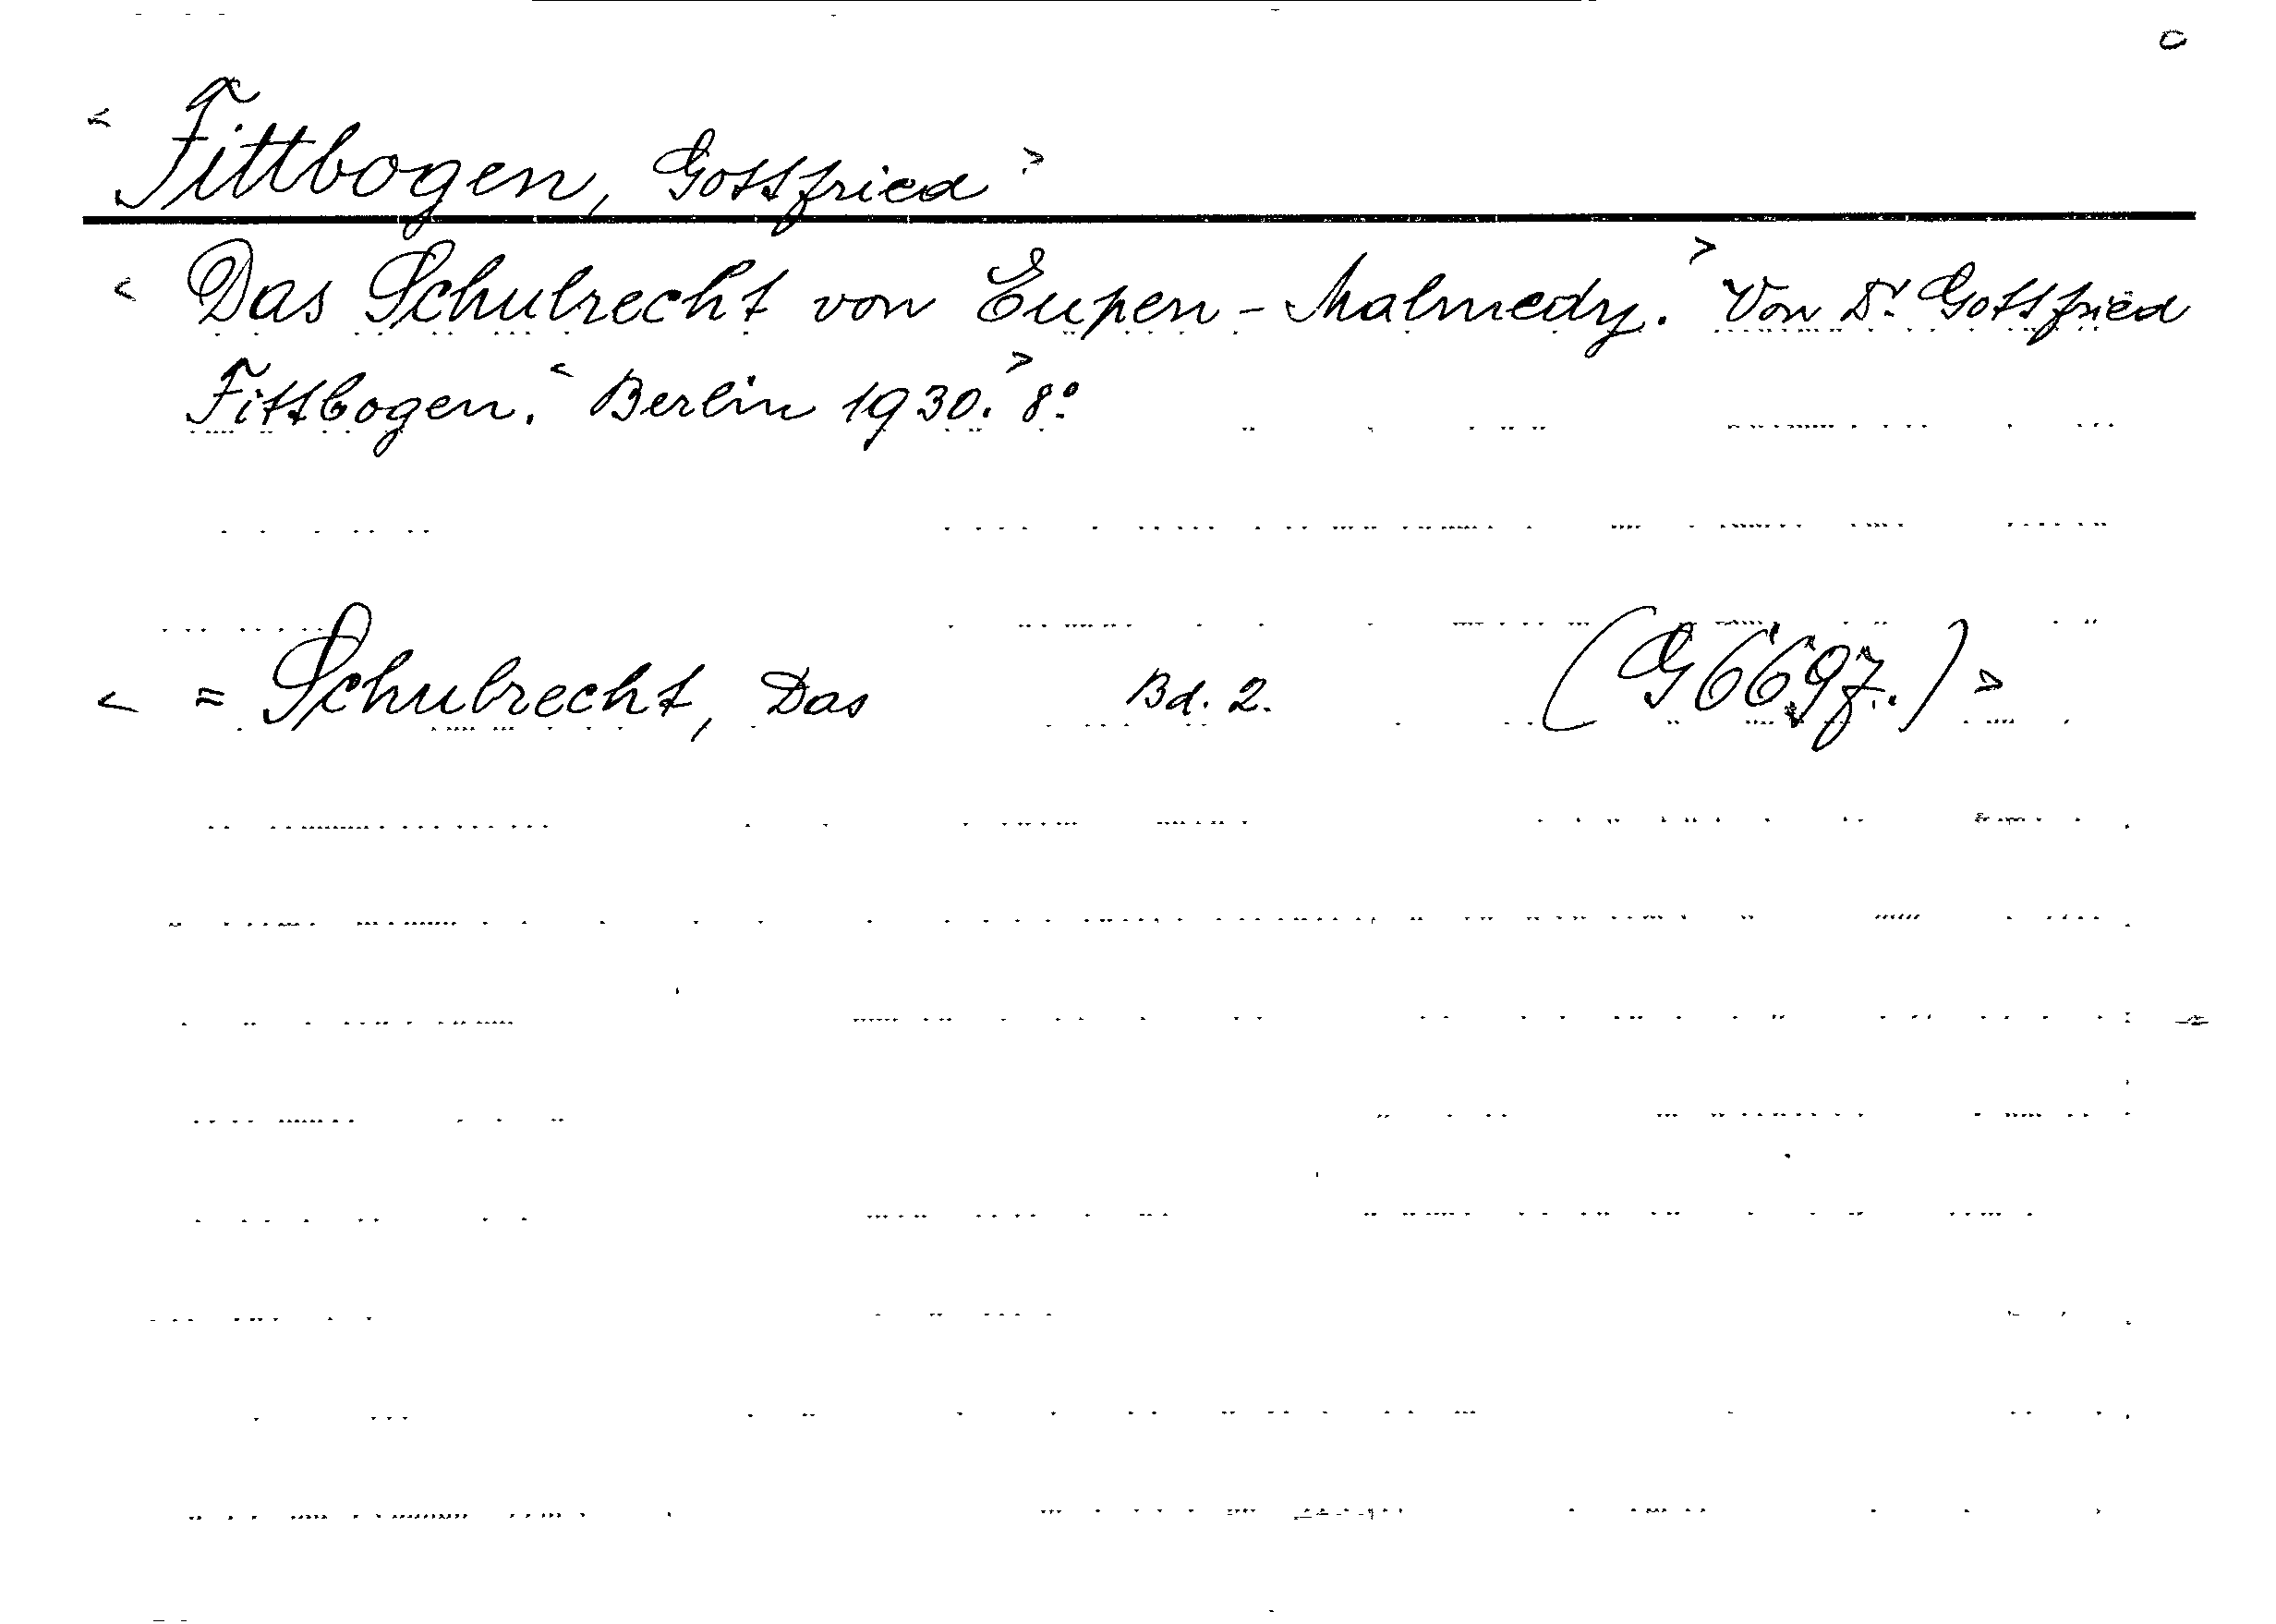 < Fittbogen, Gottfried >
< Das Schulrecht von Eupen-Malmedy. > Von Dr. Gottfried
Fittbogen. < Berlin 1930. > 8°
< = Schulrecht, Das Bd. 2. (G 6697.) >